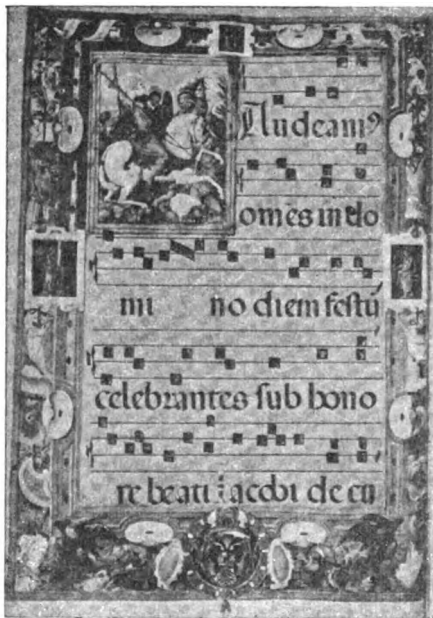 Audeamꝰ
omēs in do
mi no diem festū
celebrantes sub hono
re beati iacobi de cu